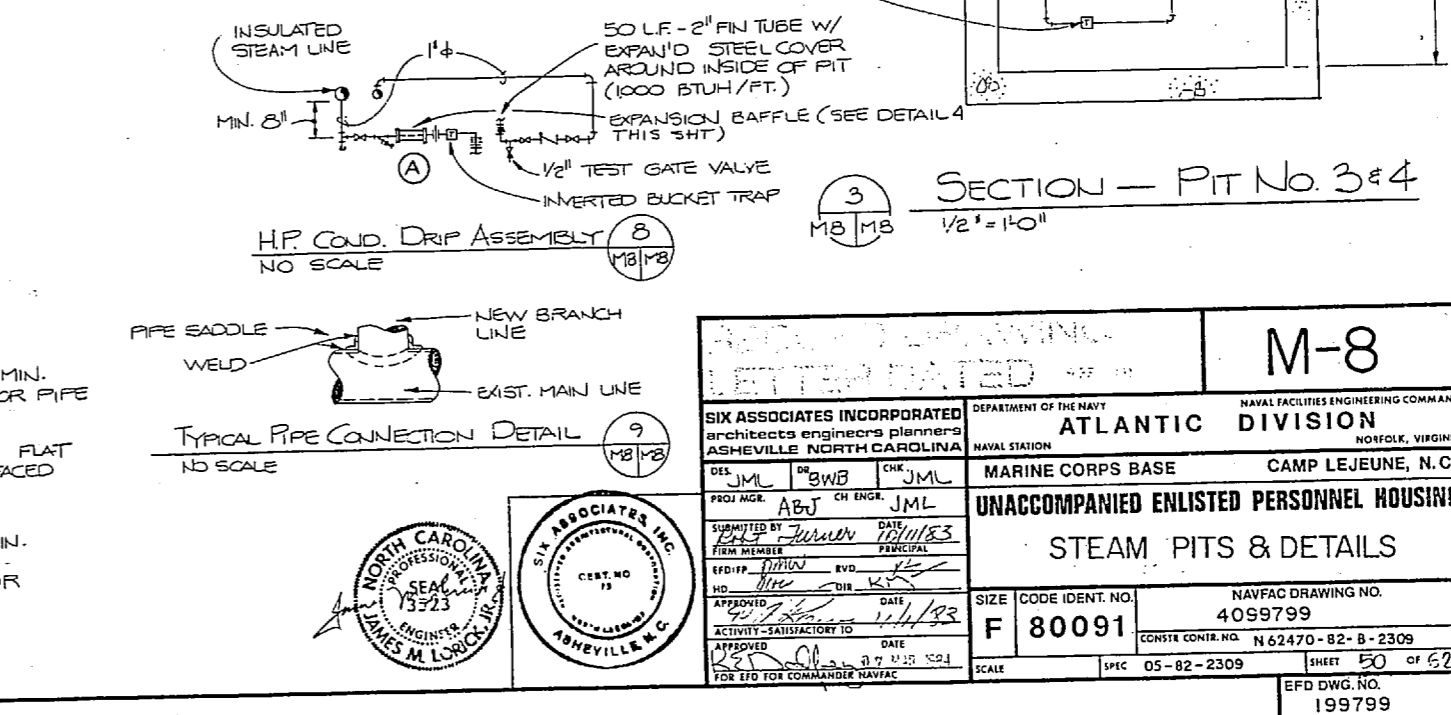 INSULATED
STEAM LINE
1"φ
MIN. 8"
A
50 L.F. - 2" FIN TUBE W/
EXPAN'D STEEL COVER
AROUND INSIDE OF PIT
(1,000 BTUH/FT.)
EXPANSION BAFFLE (SEE DETAIL 4
THIS SHT)
1/2" TEST GATE VALVE
INVERTED BUCKET TRAP
T
T
H.P. COND. DRIP ASSEMBLY
NO SCALE
8
M8 M8
3
M8 M8
SECTION — PIT NO. 3 & 4
1/2" = 1'-0"
PIPE SADDLE
WELD
NEW BRANCH
LINE
EXIST. MAIN LINE
TYPICAL PIPE CONNECTION DETAIL
NO SCALE
9
M8 M8
MIN.
OR PIPE
FLAT
ACED
IN.
OR
NORTH CAROLINA
PROFESSIONAL
SEAL
3523
ENGINEER
JAMES M. LORICK, JR.
SIX ASSOCIATES, INC.
CERT. NO
ASHEVILLE, N. C.
DRAWING
LETTER DATED
M-8
SIX ASSOCIATES INCORPORATED
architects engineers planners
ASHEVILLE NORTH CAROLINA
DEPARTMENT OF THE NAVY
NAVAL FACILITIES ENGINEERING COMMAN
ATLANTIC DIVISION
NAVAL STATION
NORFOLK, VIRGINI
MARINE CORPS BASE
CAMP LEJEUNE, N.C
UNACCOMPANIED ENLISTED PERSONNEL HOUSIN
STEAM PITS & DETAILS
DES. JML DR BWB CHK JML
PROJ MGR. ABJ CH ENGR. JML
SUBMITTED BY Turner DATE 10/11/83
FIRM MEMBER PRINCIPAL
EFD: FP RVD
HD DIR
APPROVED DATE 11/1/83
ACTIVITY-SATISFACTORY TO
APPROVED DATE
FOR EFD FOR COMMANDER NAVFAC
SIZE F
CODE IDENT. NO. 80091
NAVFAC DRAWING NO.
4099799
CONSTR CONTR. NO. N 62470 - 82 - B - 2309
SCALE SPEC 05-82-2309 SHEET 50 OF 62
EFD DWG. NO.
199799